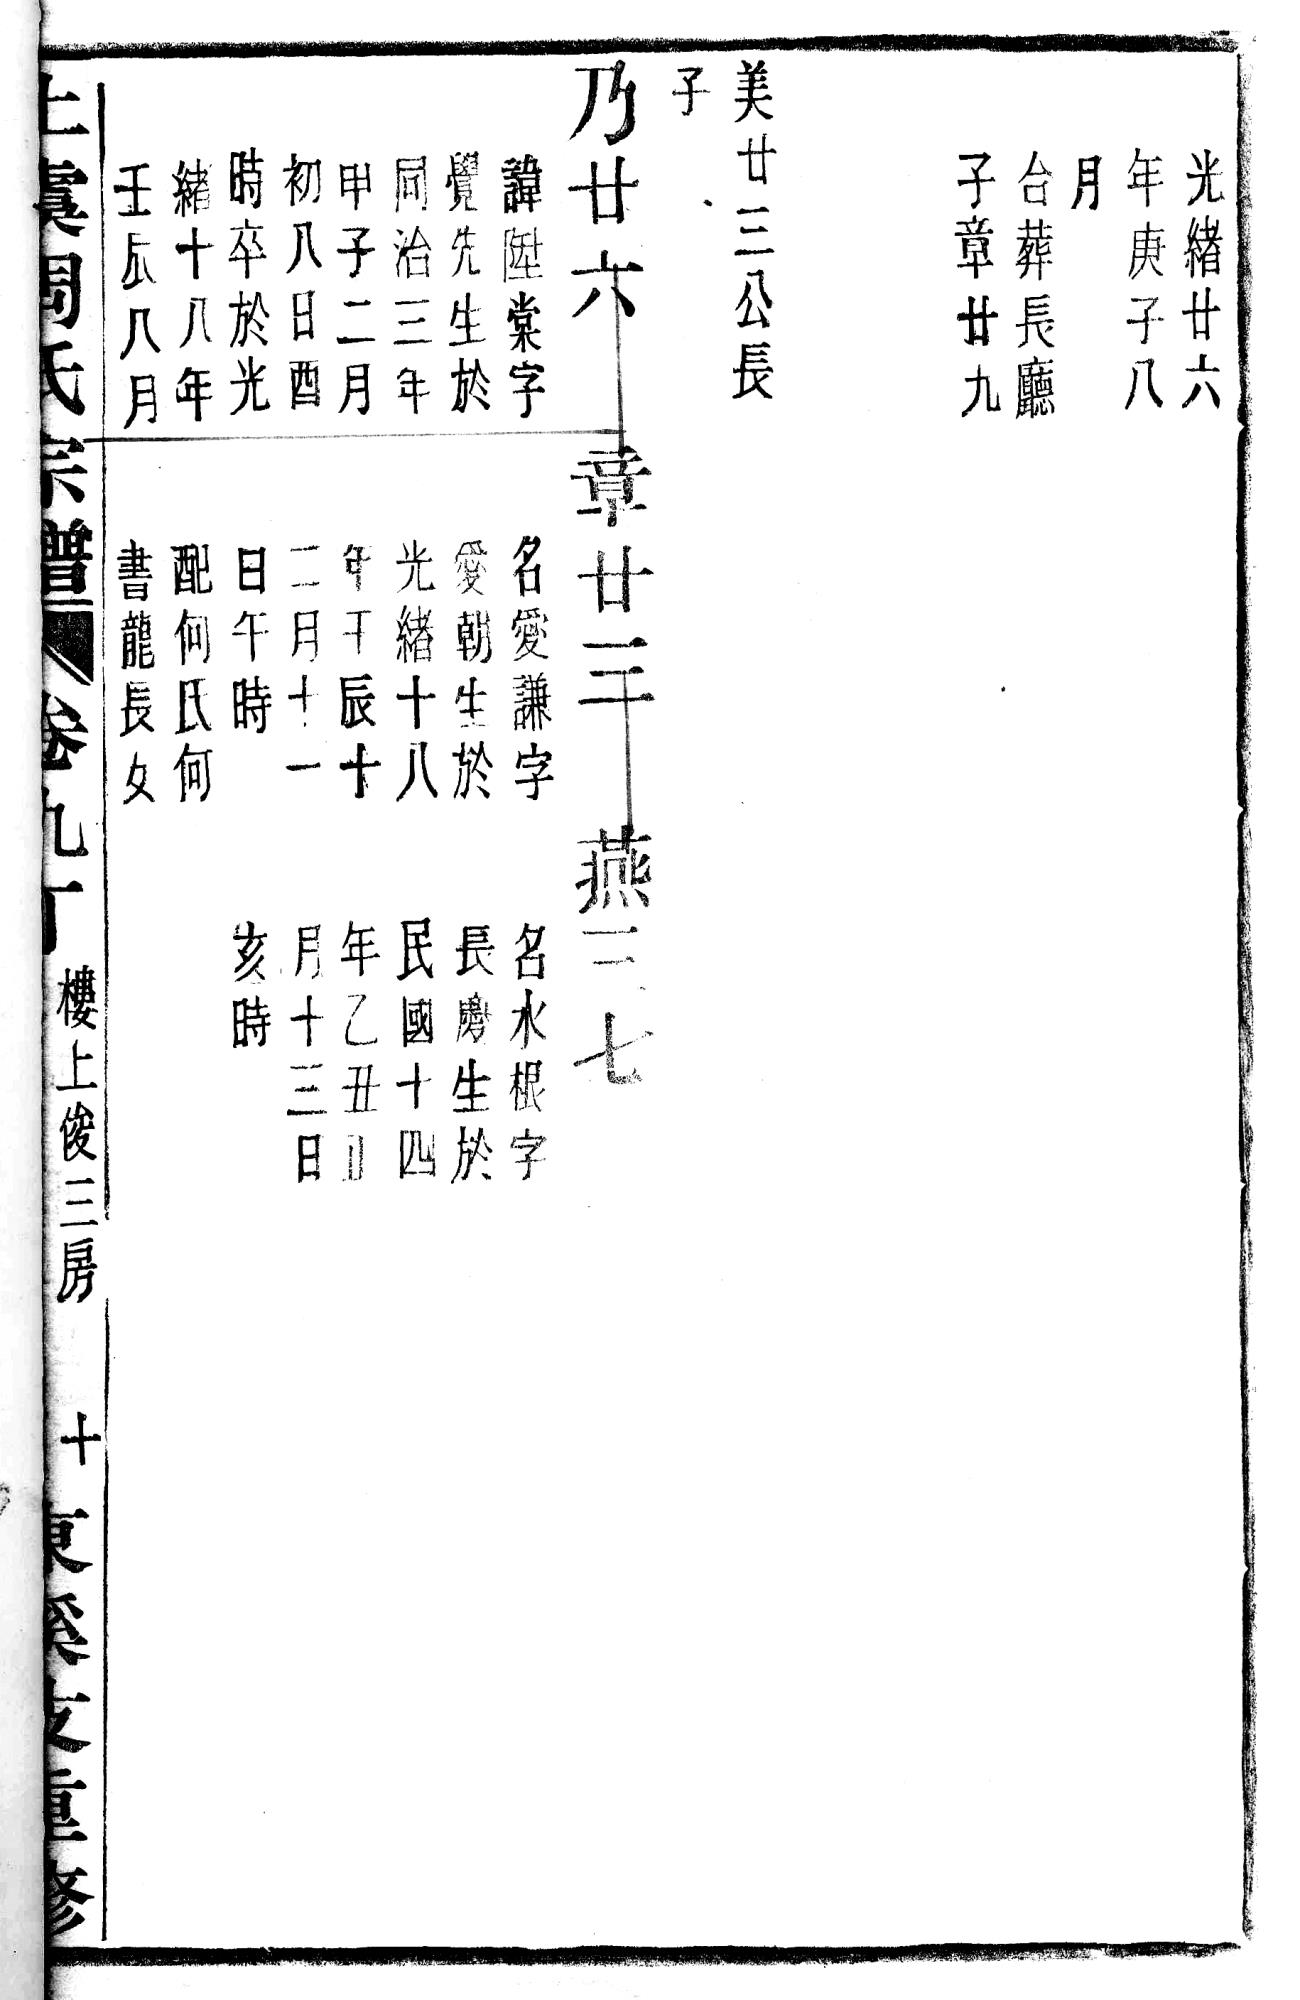 光緒廿六
年庚子八
月
台葬長廳
子章廿九
美廿三公長
子
乃廿六
章廿三
燕三七
諱陞棠字
覺先生於
同治三年
甲子二月
初八日酉
時卒於光
緒十八年
壬辰八月
名愛謙字
愛朝生於
光緒十八
年壬辰十
二月十一
日午時
配何氏何
書龍長女
名水根字
長慶生於
民國十四
年乙丑
月十三日
亥時
上虞周氏宗譜
卷九丁
樓上俊三房
十
東溪支重修